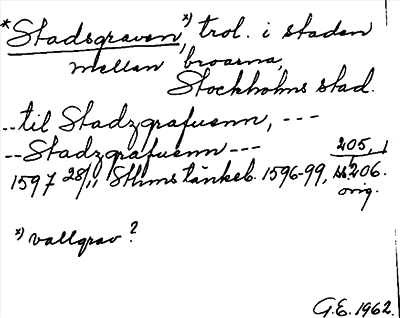 *Stadsgraven, *) trol. i staden
mellan broarna,
Stockholms stad.
--til Stadzgrafuenn, ---
--Stadzgrafuenn--- 205,
1597 28/11 Sthms tänkeb. 1596-99, s. 206.
orig.
*) vallgrav?
G.E. 1962.